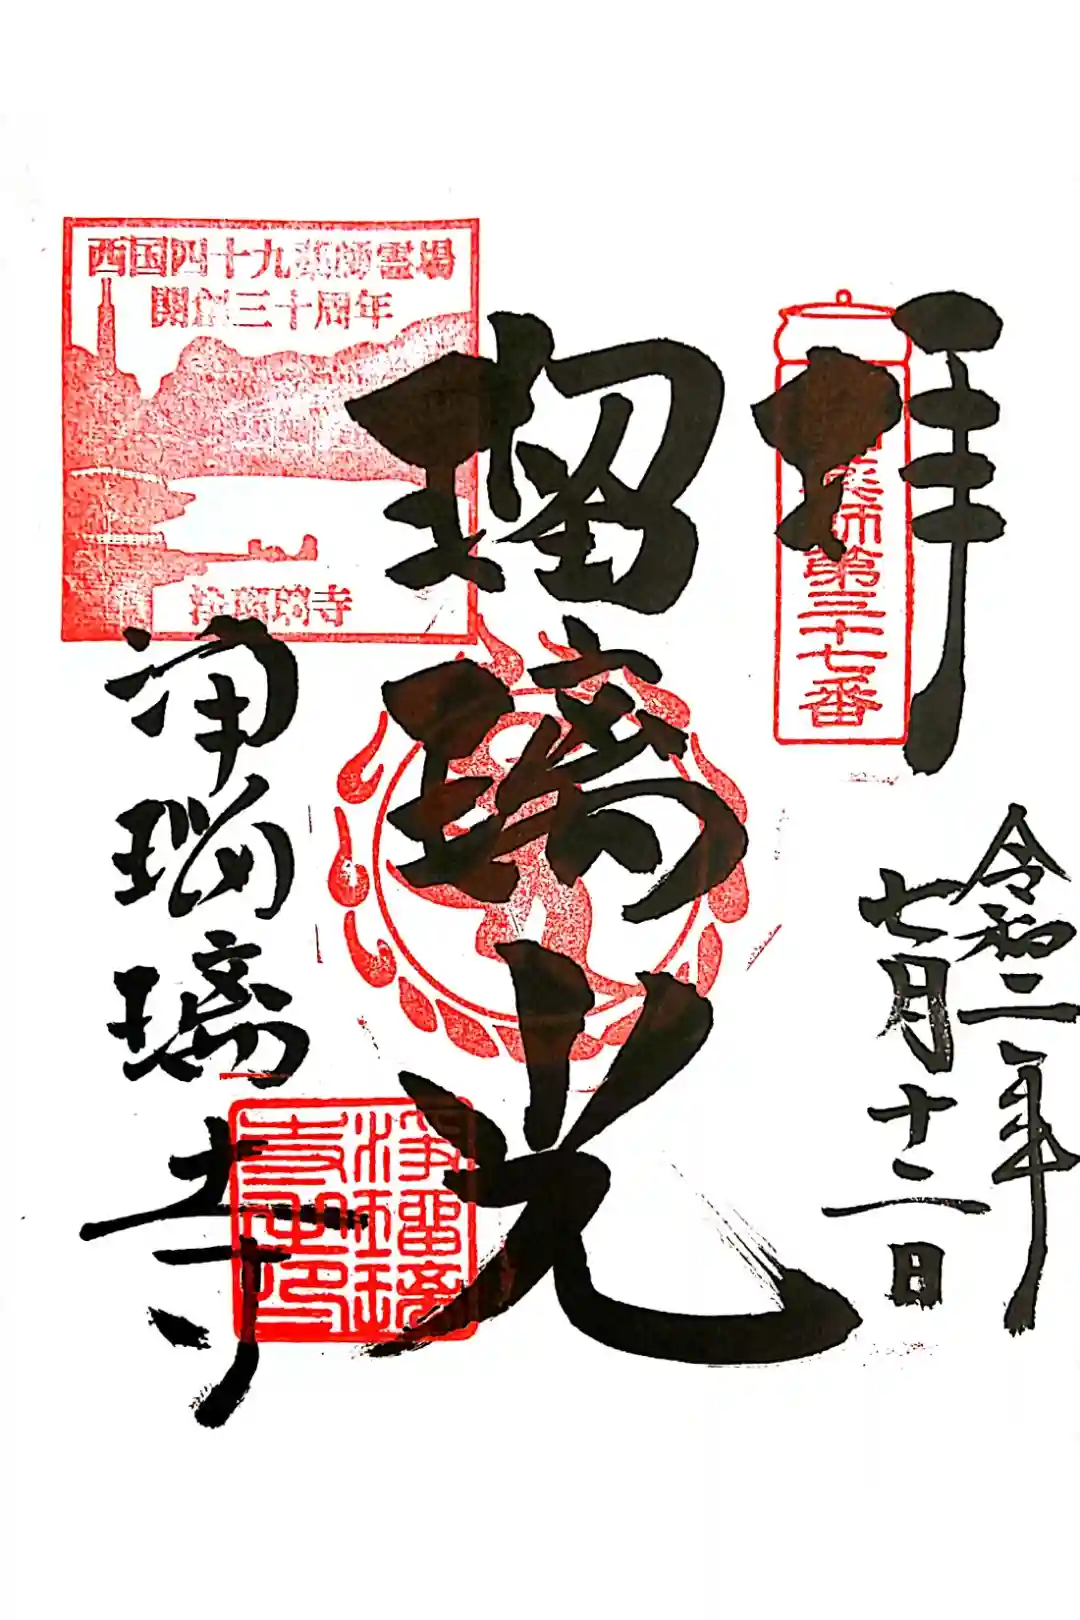 拝
師第三十七番
令和二年
七月十二日
瑠璃光
西国四十九薬師霊場
開創三十周年
浄瑠璃寺
浄瑠璃寺
浄瑠璃
寺之印